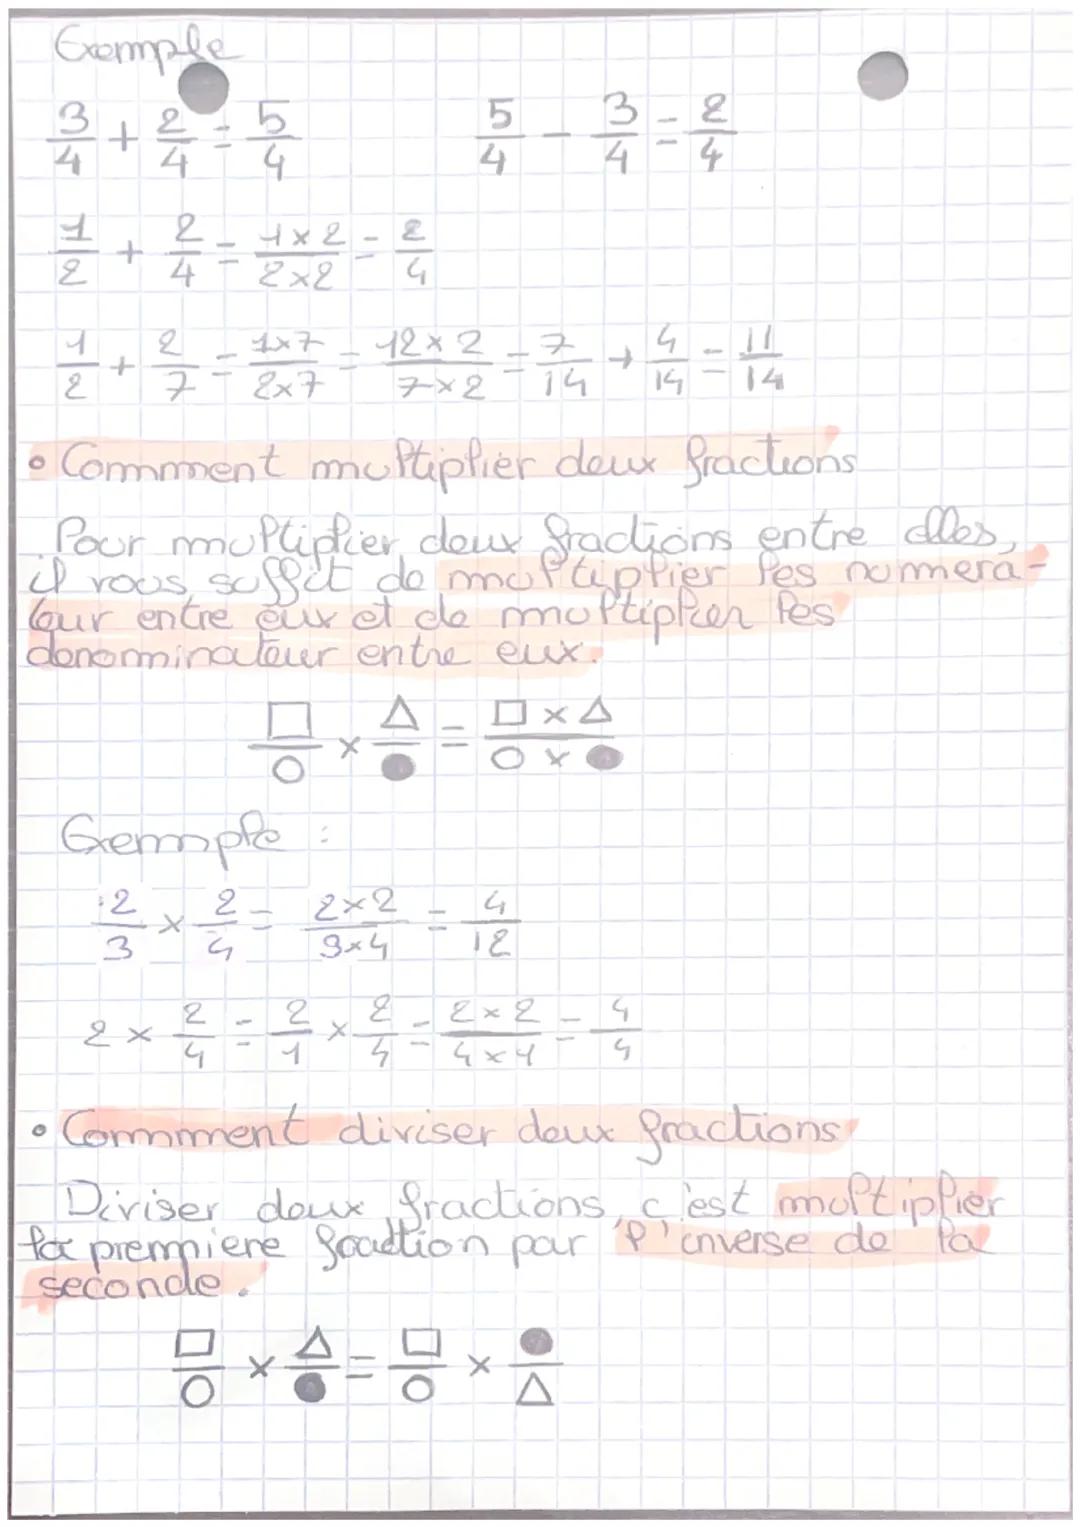 Exemple
3/4 + 2/4 = 5/4    5/4 - 3/4 = 2/4
1/2 + 2/4 = 1×2/2×2 = 2/4
1/2 + 2/7 = 1×7/2×7 = 12×2/7×2 = 7/14 + 4/14 = 11/14
• Commment multiplier deux fractions
Pour multiplier deux fractions entre elles,
il vous suffit de multiplier les numera-
teur entre eux et de multiplier les
denominateur entre eux.
□/○ × △/● = □×△/○×●
Exemple :
2/3 × 2/4 = 2×2/3×4 = 4/12
2 × 2/4 = 2/1 × 2/4 = 2×2/4×1 = 4/4
• Commment diviser deux fractions
Diviser deux fractions, c'est multiplier
la premiere fraction par l'inverse de la
seconde.
□/○ × △/● = □/○ × ●/△